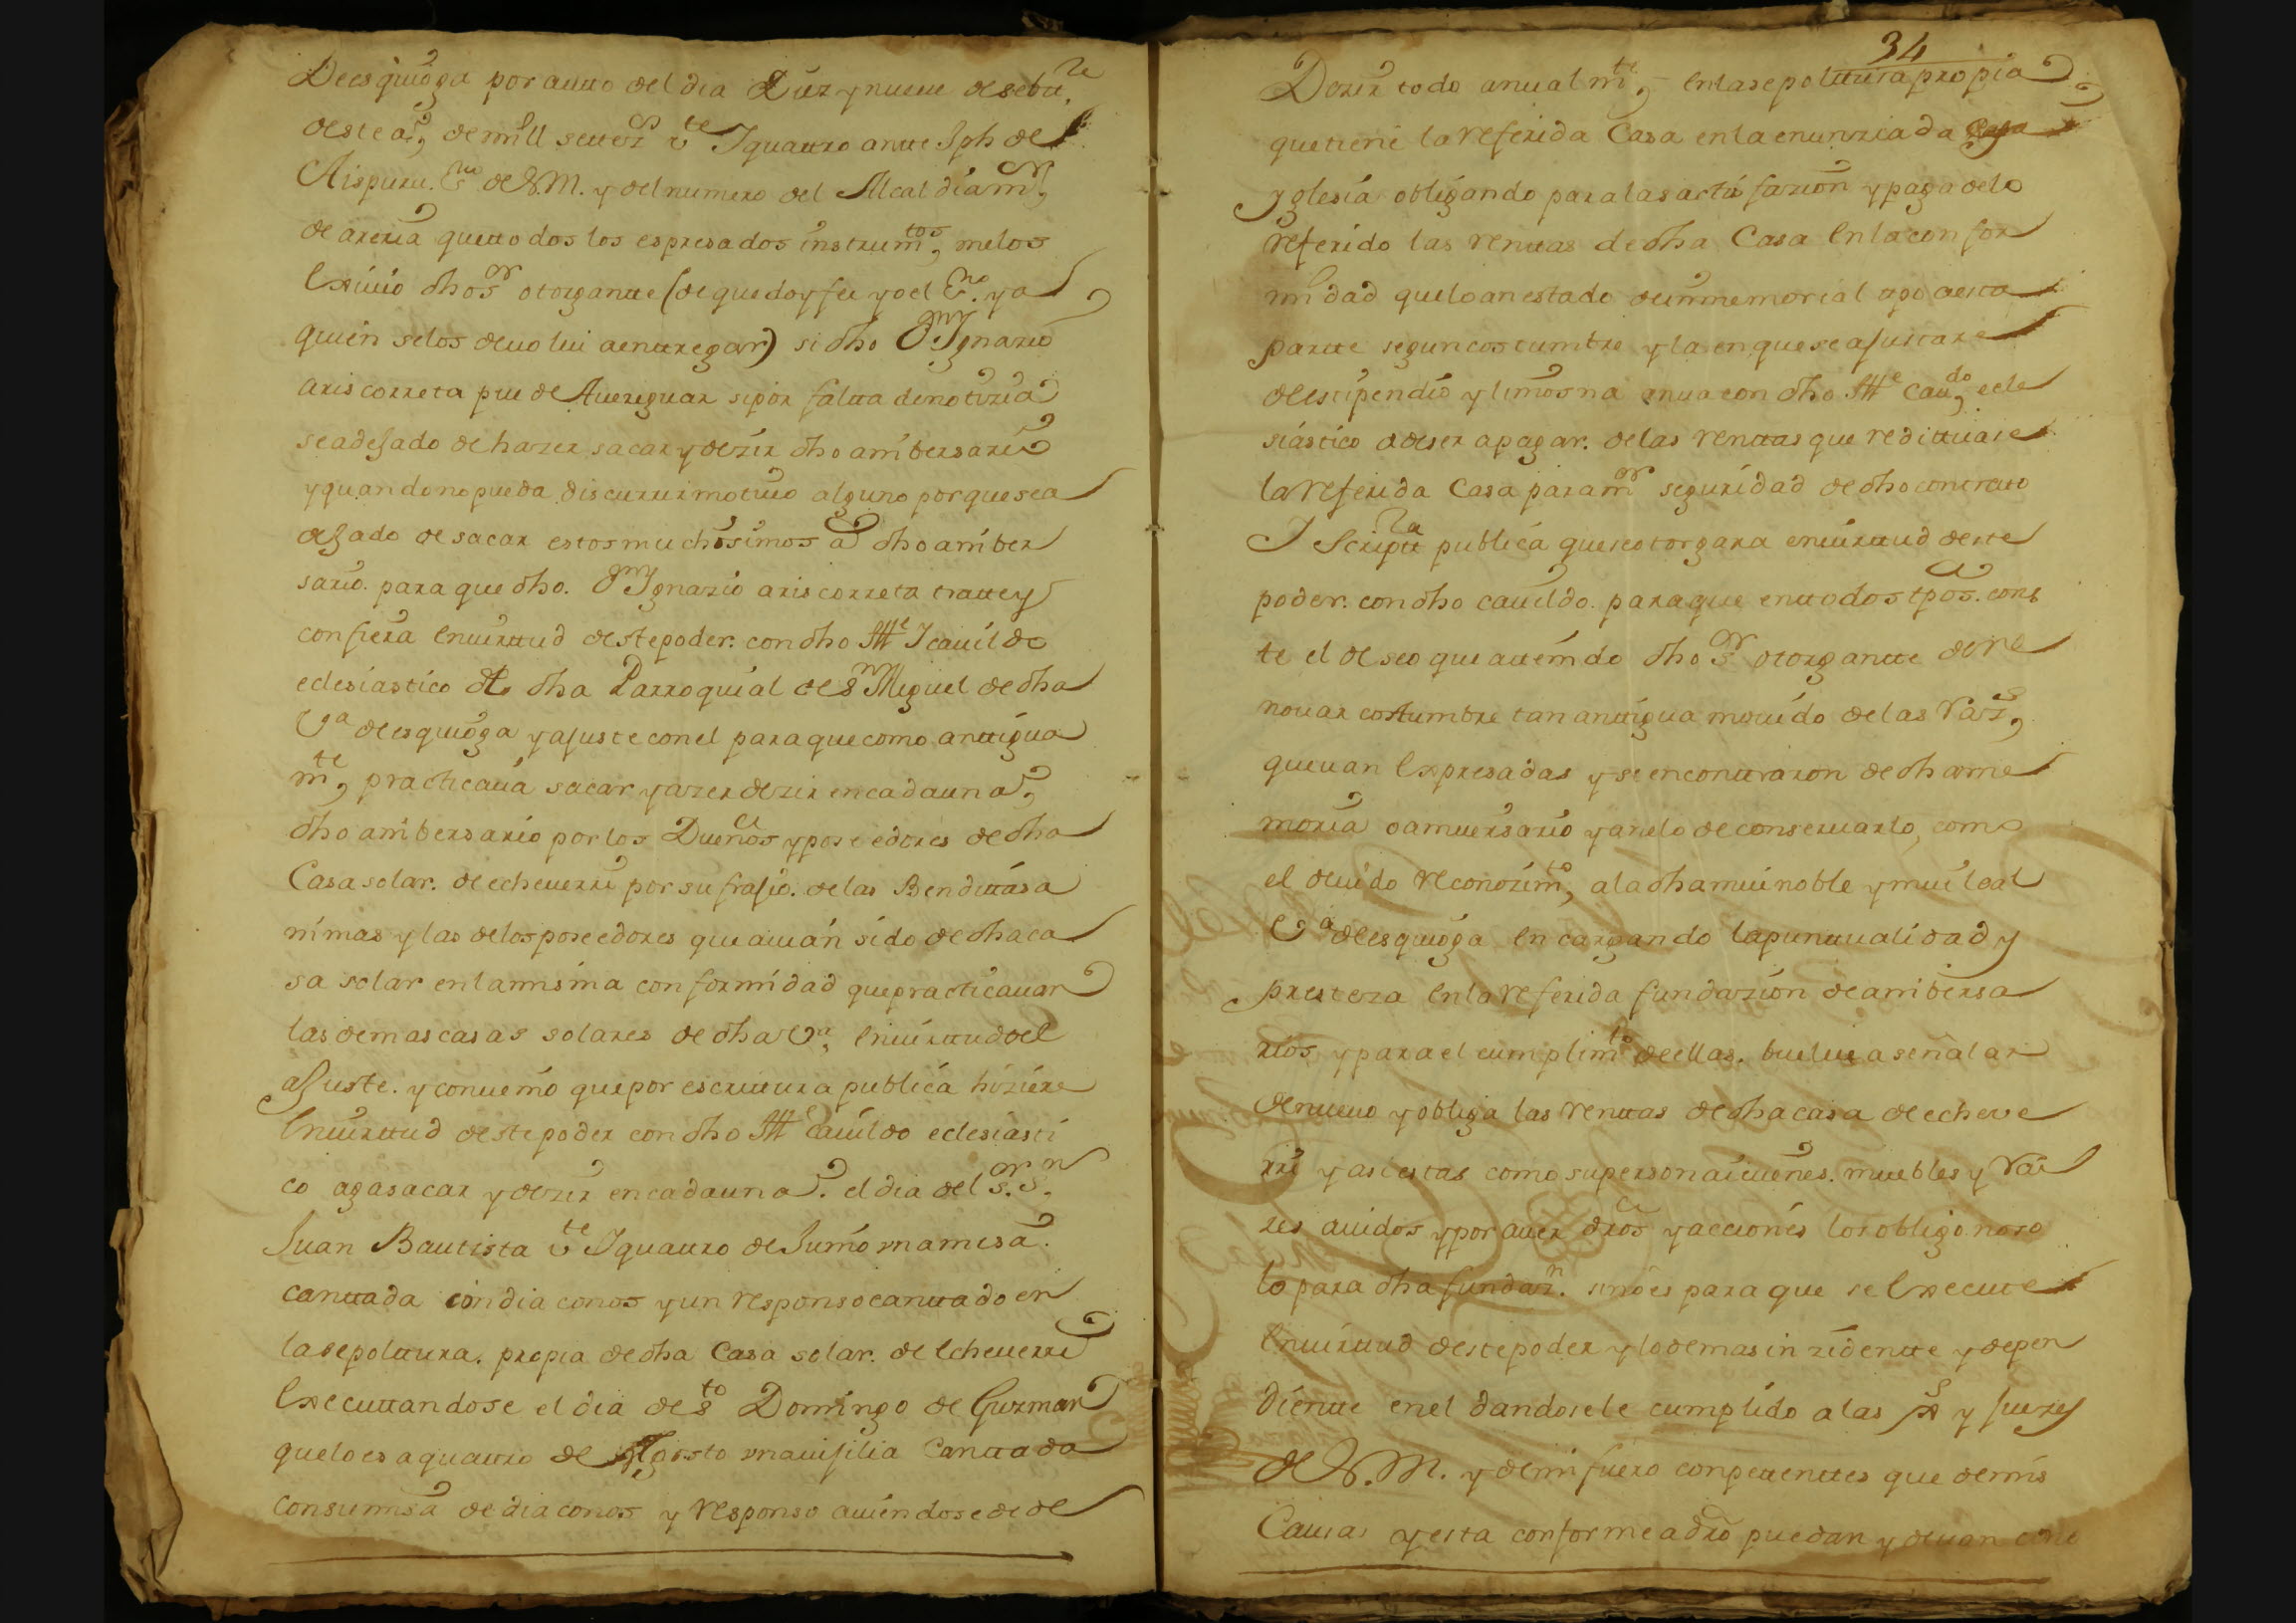 Deesquioga por autto del dia Diez y nueue de sebttre
deste aº, de mill settezs vte Y quattro ante Jph de
Aispuru. Esno de S.M. y del numero del Alcaldia mor,
de areria que ttodos los espresados instrumtos, me los
Exiuio dho sor otorgantte (de que doy fee yo el Esno. y a
quien se los deuolui a enttregar) si dho Dn Ygnazio
ariscorreta puede Aueriguar si por faltta de notizia
se a dejado de hazer sacar y dezir dho anibersario
y quando no pueda discurrir motiuo alguno por que se a
dejado de sacar estos muchosimos aos dho aniber
sario. para que dho. Dn Ygnazio ariscorreta tratte y
confiera En uirttud deste poder. con dho Itte Y cauildo
eclesiastico de dha Parroquial de Sn Miguel de dha
Va de esquioga y ajuste con el para que como anttigua
mte, practicaua sacar y azer dezir en cada un aº,
dho anibersario por los Dueños y poseedores de dha
Casa solar. de echeuerri por sufrajio. de las Bendittas a
nimas y las de los poseedores que auian sido de dha ca
sa solar en la misma conformidad que practicauan
las demas casas solares de dha Va, En uirttud del
ajuste. y conuenio que por escrittura publica hiziere
En uirttud deste poder con dho Itte Cauildo eclesiasti
co aga sacar y dezir en cada un aº. el dia del Sor. Sn.
Juan Bautista vte Y quattro de Junio una misa.
canttada con diaconos y un responso canttado en
la sepolttura. propia de dha Casa solar. de Echeuerri
Executtandose el dia de Sto Domingo de Guzman
que lo es a quattro de Agosto una uijilia Canttada
con su misa de diaconos y responso auiendose de de
34
Dezir todo anualmte, En la sepolttura propia
que tiene la referida Casa en la enunziada
yglesia obligando para la sactisfazion y paga de lo
referido las renttas de dha Casa En la confor
midad que lo an estado de ynmemorial tpo a esta
partte segun costumbre y la en que se ajustare
de estipendio y limosna anua con dho Itte Caudo, ecle
siastico a de ser a pagar. de las renttas que redittuare
la referida Casa para mor seguridad de dho contrato
Y Scripttra publica que se otorgara en uirttud deste
poder. con dho cauildo. para que en ttodos tpos. cons
te el deseo que a ttenido dho Sor otorgantte de re
nouar costumbre tan anttigua mouido de las razs,
que uan Expresadas y se enconttraron de dha me
moria o aniuersario y anelo de conseruarlo, como
el deuido reconozimto, a la dha mui noble y mui leal
Va de esquioga Encargando la punttualidad y
presteza En la referida fundazion de anibersa
rios, y para el cumplimto de ellas. buelue a señalar
de nueuo y obliga las renttas de dha casa de echeue
rri y asi estas como su persona i uienes. muebles y rai
zes auidos y por auer dros y acciones los obligo no so
lo para dha fundazn. sino es para que se Execute
En uirttud deste poder y lo demas inzidentte y depen
dientte en el dandosele cumplido a las Js y juezes
de S.M. y de mi fuero conpettenttes que de mis
Causas y esta conforme a dro puedan y deuan cono